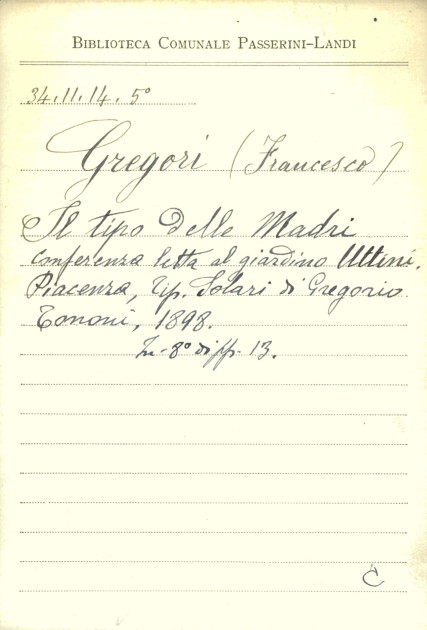 BIBLIOTECA COMUNALE PASSERINI-LANDI
34.11.14.5°
Gregori (Francesco)
Il tipo delle Madri
conferenza letta al giardino Uttini.
Piacenza, Tip. Solari di Gregorio
Tononi, 1898.
In-8° di pp. 13.
C